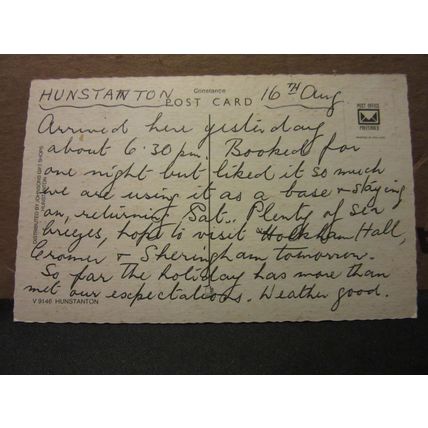 HUNSTANTON
Constance
POST CARD
16TH Aug
POST OFFICE
PREFERRED
Arrived here yesterday
about 6.30 pm. Booked for
one night but liked it so much
we are using it as a base & staying
on, returning Sat.. Plenty of sea
breezes, hope to visit Holkham Hall,
Cromer & Sheringham tomorrow.
So far the holiday has more than
met our expectations. Weather good.
DISTRIBUTED BY JOHNSONS GIFT SHOPS
HUNSTANTON
V 9146 HUNSTANTON